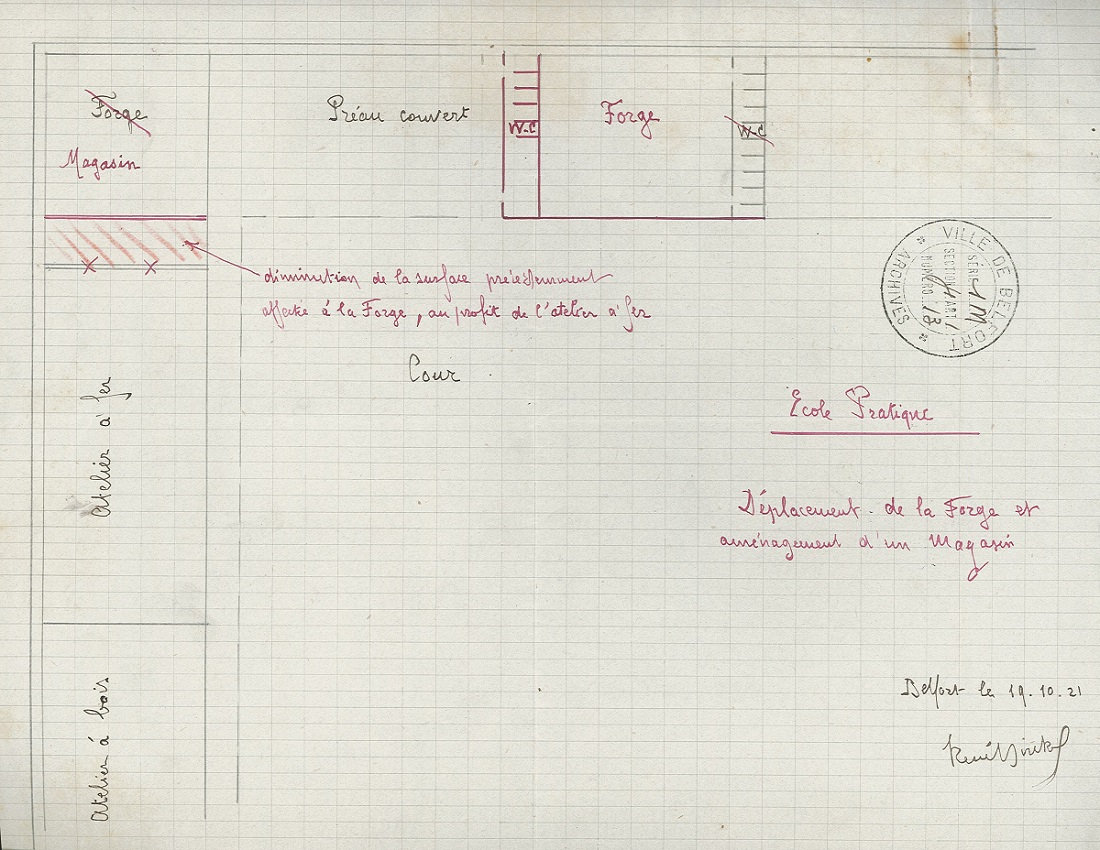 Forge
Magasin
Préau couvert
W-C
Forge
W-C
diminution de la surface précédemment
affectée à la Forge, au profit de l'atelier à fer
Cour
VILLE DE BELFORT
* ARCHIVES *
SÉRIE 1M
SECTION 4 ART 1
NUMÉRO 13
Ecole Pratique
Déplacement de la Forge et
aménagement d'un Magasin
Atelier à fer
Atelier à bois
Belfort le 19.10.21